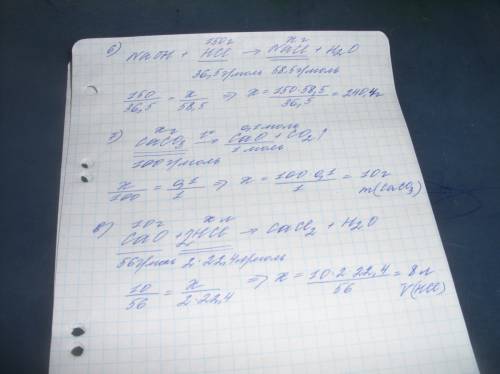 б) NaOH + HCl → NaCl + H2O
150г x г
36,5г/моль 58,5г/моль
150/36,5 = x/58,5 ⇒ x = 150·58,5/36,5 = 240,4г
x г 0,1моль
CaCO3 t° → CaO + CO2↑
100г/моль 1моль
x/100 = 0,1/1 ⇒ x = 100·0,1/1 = 10г
m(CaCO3)
10г x л
CaO + 2HCl → CaCl2 + H2O
56г/моль 2·22,4л/моль
10/56 = x/2·22,4 ⇒ x = 10·2·22,4/56 = 8л
V(HCl)